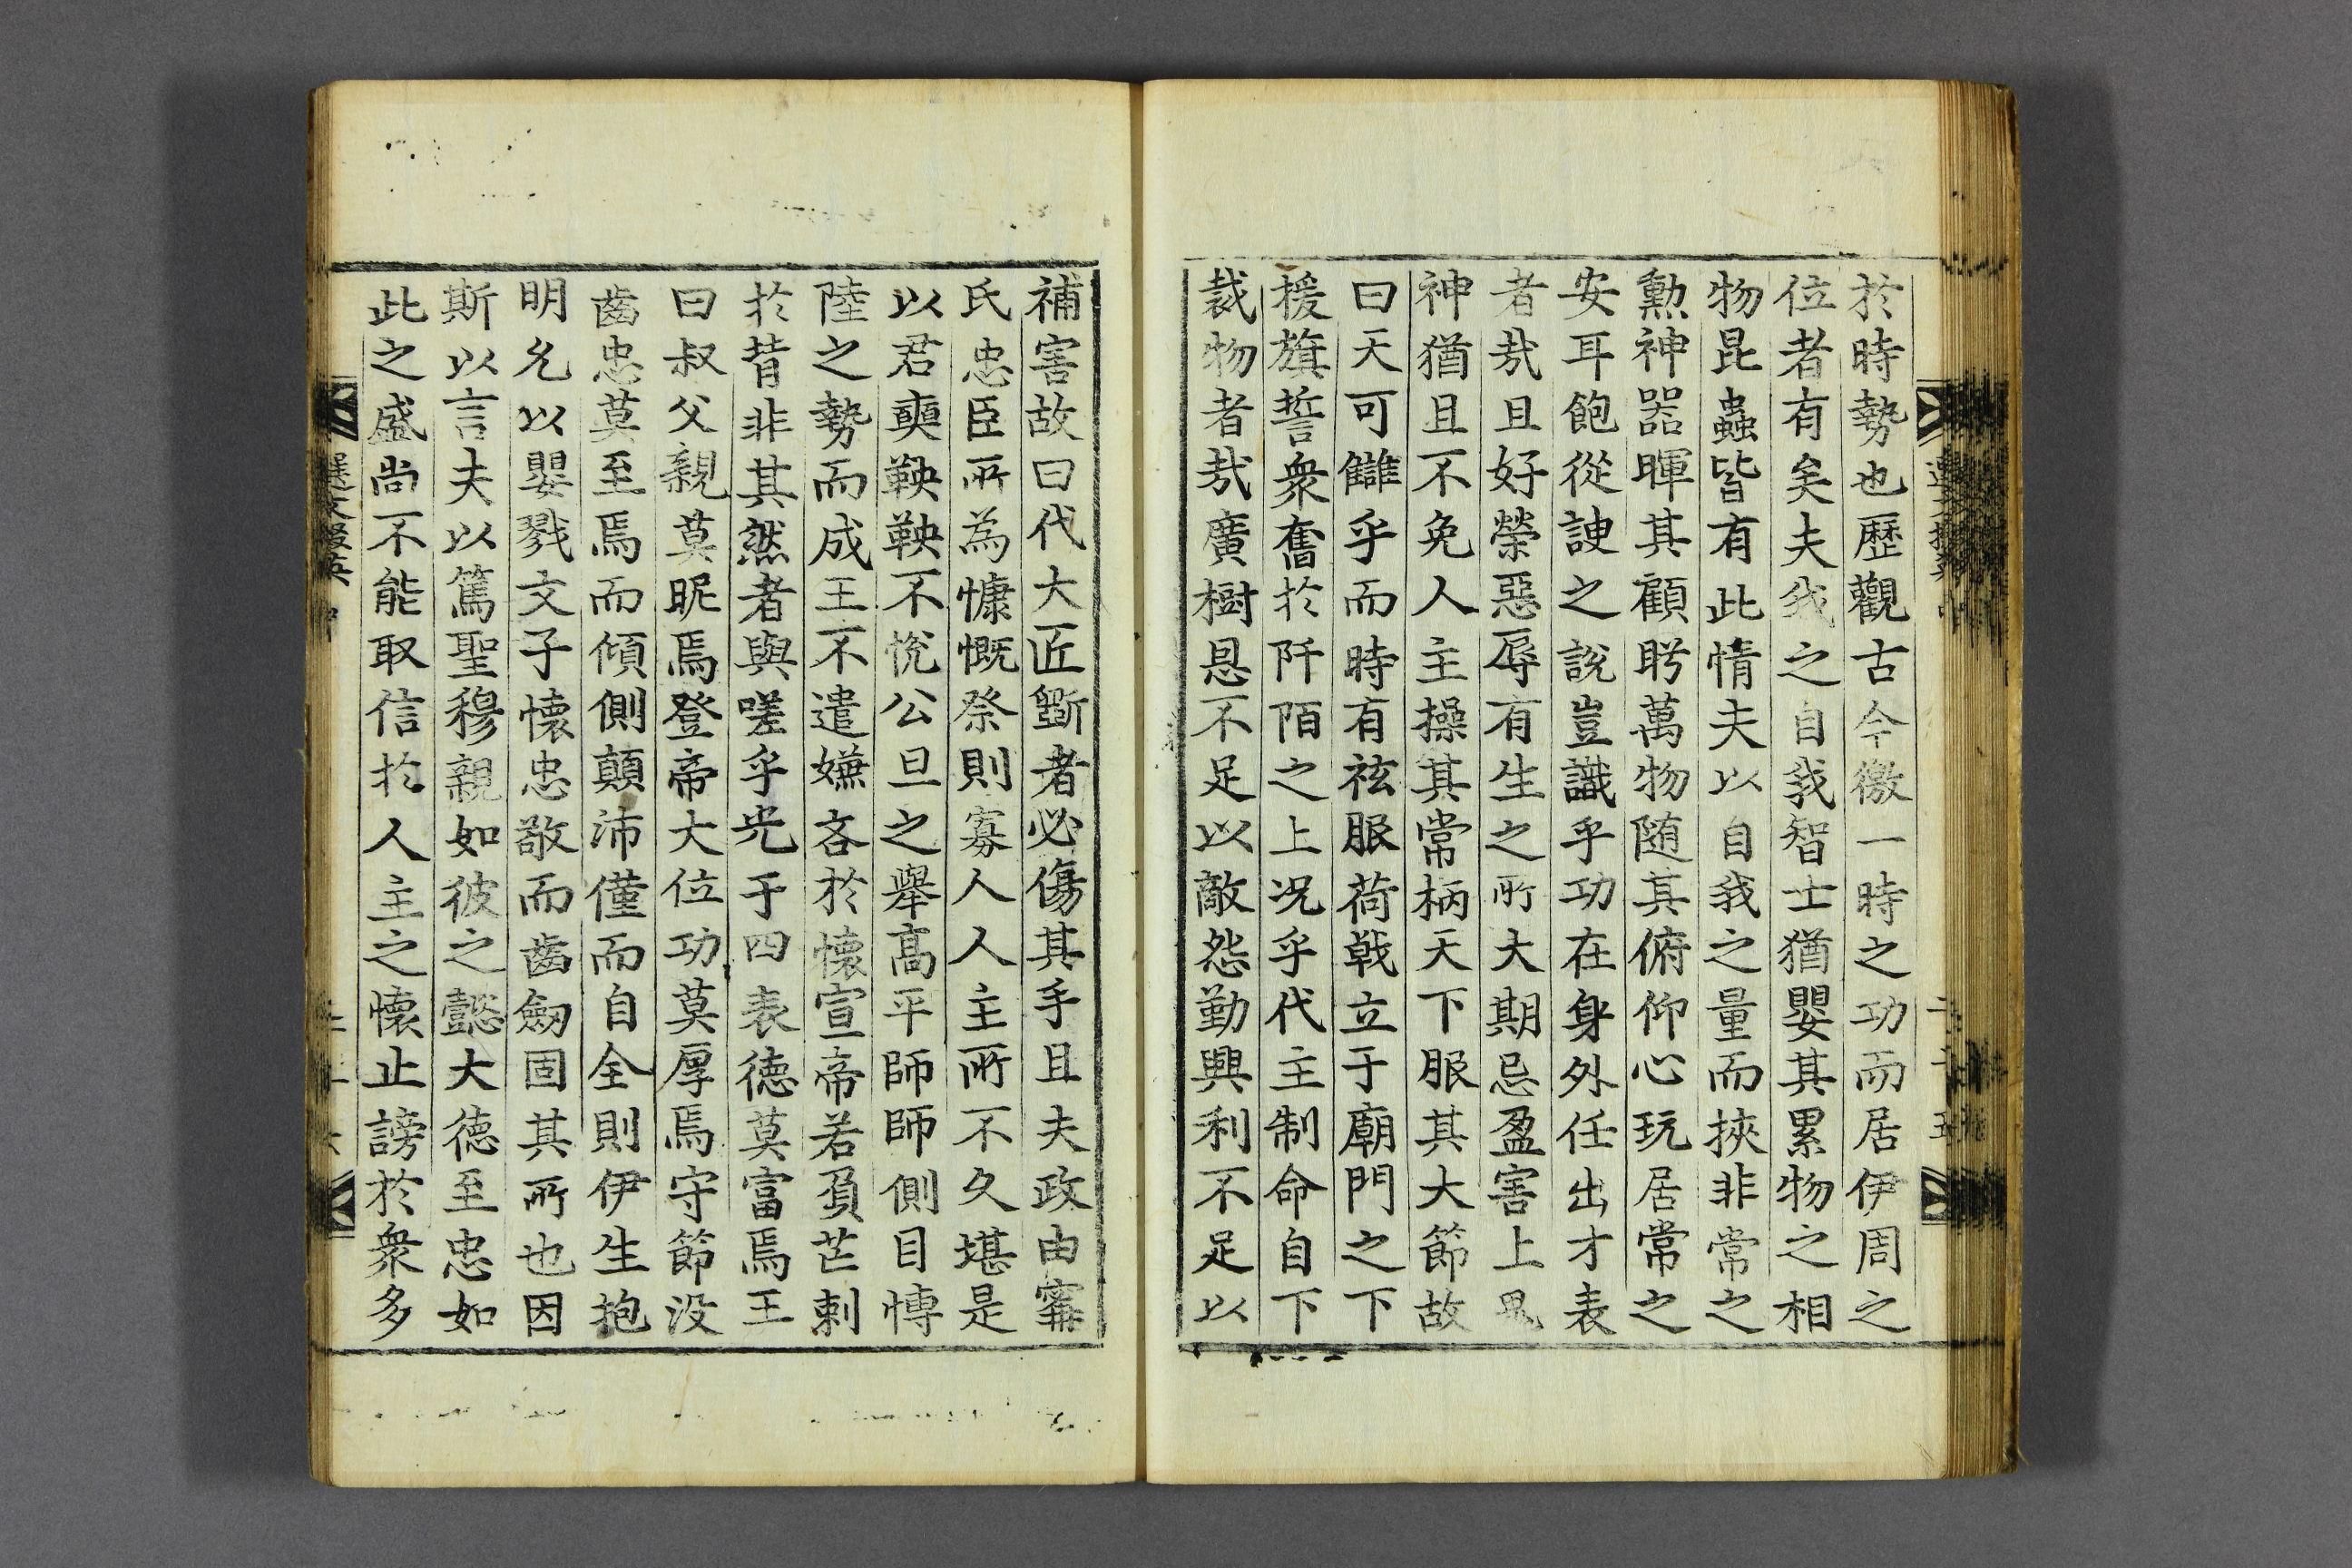 於時勢也歷觀古今徼一時之功而居伊周之
位者有矣夫我之自我智士猶嬰其累物之相
物昆蟲皆有此情夫以自我之量而挾非常之
勲神器暉其顧眄萬物随其俯仰心玩居常之
安耳飽從諛之說豈識乎功在身外任出才表
者㢤且好榮惡辱有生之所大期忌盈害上鬼
神猶且不免人主操其常柄天下服其大節故
曰天可讎乎而時有袨服荷戟立于廟門之下
援旗誓衆奮於阡陌之上况乎代主制命自下
裁物者㢤廣樹恩不足以敵怨勤興利不足以
補害故曰代大匠斲者必傷其手且夫政由寗
氏忠臣所為慷慨祭則寡人人主所不久堪是
以君奭鞅鞅不悦公旦之舉髙平師師側目愽
陸之勢而成王不遣嫌吝於懷宣帝若負芒刺
於昔非其然者與嗟乎光于四表徳莫富焉王
曰叔父親莫昵焉登帝大位功莫厚焉守節没
齒忠莫至焉而傾側顛沛僅而自全則伊生抱
明允以嬰戮文子懷忠敬而齒劒固其所也因
斯以言夫以篤聖穆親如彼之懿大徳至忠如
此之盛尚不能取信於人主之懷止謗於衆多